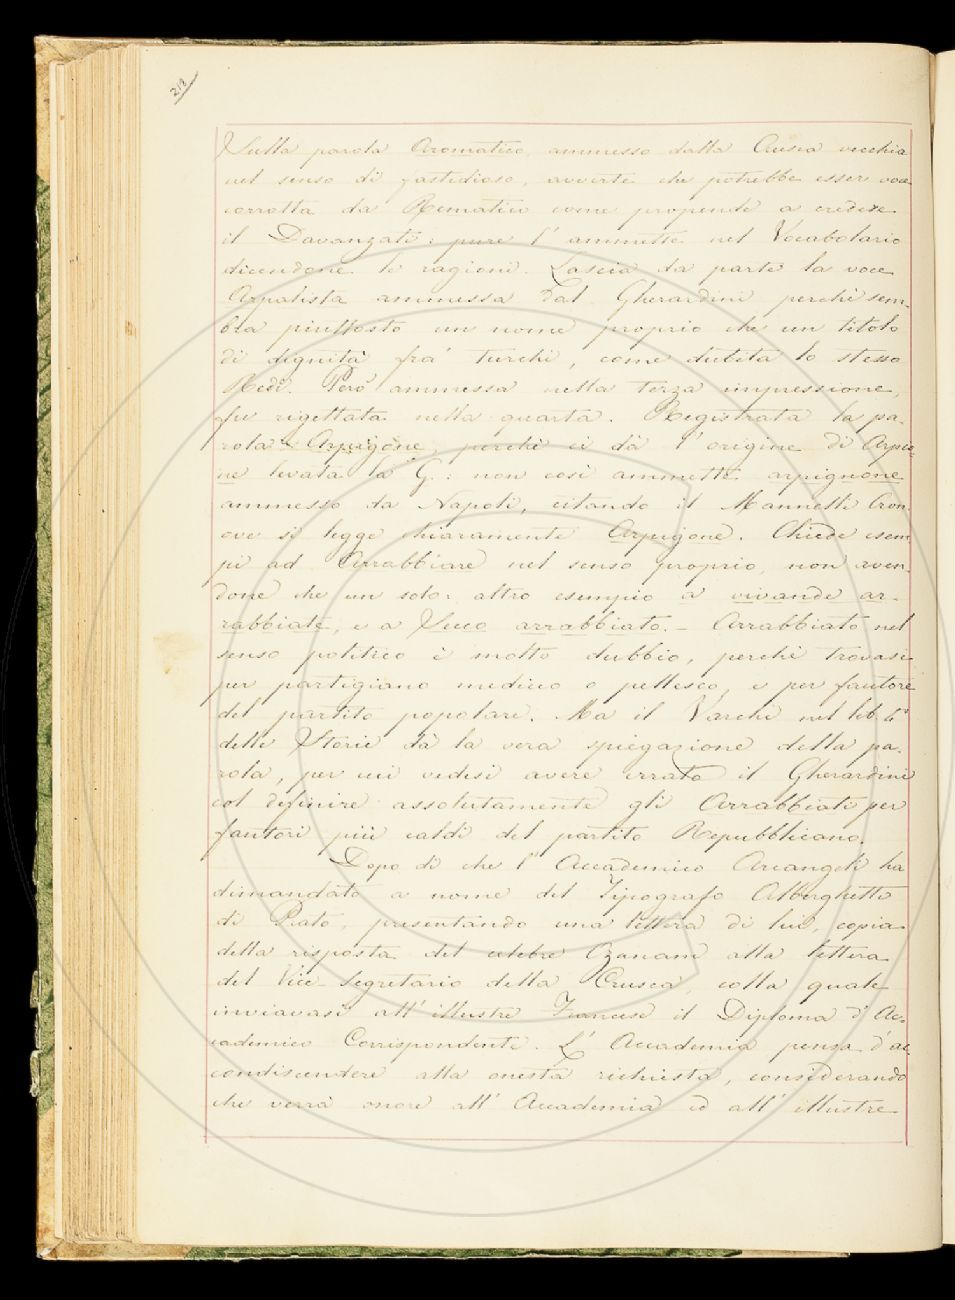 218
Sulla parola Aromatico, ammesso dalla Crusca vecchia
nel senso di fastidioso, avverte che potrebbe esser voce
corrotta da Rematico come propende a credere
il Davanzati: pure l' ammette nel Vocabolario
dicendone le ragioni. Lascia da parte la voce
Arpalista ammessa dal Gherardini perchè sem-
bra piuttosto un nome proprio che un titolo
di dignità fra' turchi, come dubita lo stesso
Redi. Però ammessa nella terza impressione,
fu rigettata nella quarta. Registrata la pa-
rola Arpigone, perchè ci dà l' origine di Arpio-
ne levata la G.: non così ammette arpignone
ammesso da Napoli, citando il Mannelli Cron.
ove si legge chiaramente Arpigone. Chiede esem
pi ad Arrabbiare nel senso proprio, non aven-
done che un solo: altro esempio a vivande ar-
rabbiate, e a Secco arrabbiato. - Arrabbiato nel
senso politico è molto dubbio, perchè trovasi
per partigiano mediceo o pallesco, e per fautore
del partito popolare. Ma il Varchi nel lib. 6°
delle Storie dà la vera spiegazione della pa-
rola, per cui vedesi avere errato il Gherardini
col definire assolutamente gli Arrabbiati per
fautori più caldi del partito Repubblicano.
Dopo di che l' Accademico Arcangeli ha
dimandato a nome del Tipografo Alberghetti
di Prato, presentando una lettera di lui, copia
della risposta del celebre Ozanam alla lettera
del Vice Segretario della Crusca, colla quale
inviavasi all' illustre Francese il Diploma d' Ac-
cademico Corrispondente. L' Accademia pensa d' ac
condiscendere alla onesta richiesta, considerando
che verrà onore all' Accademia ed all' illustre